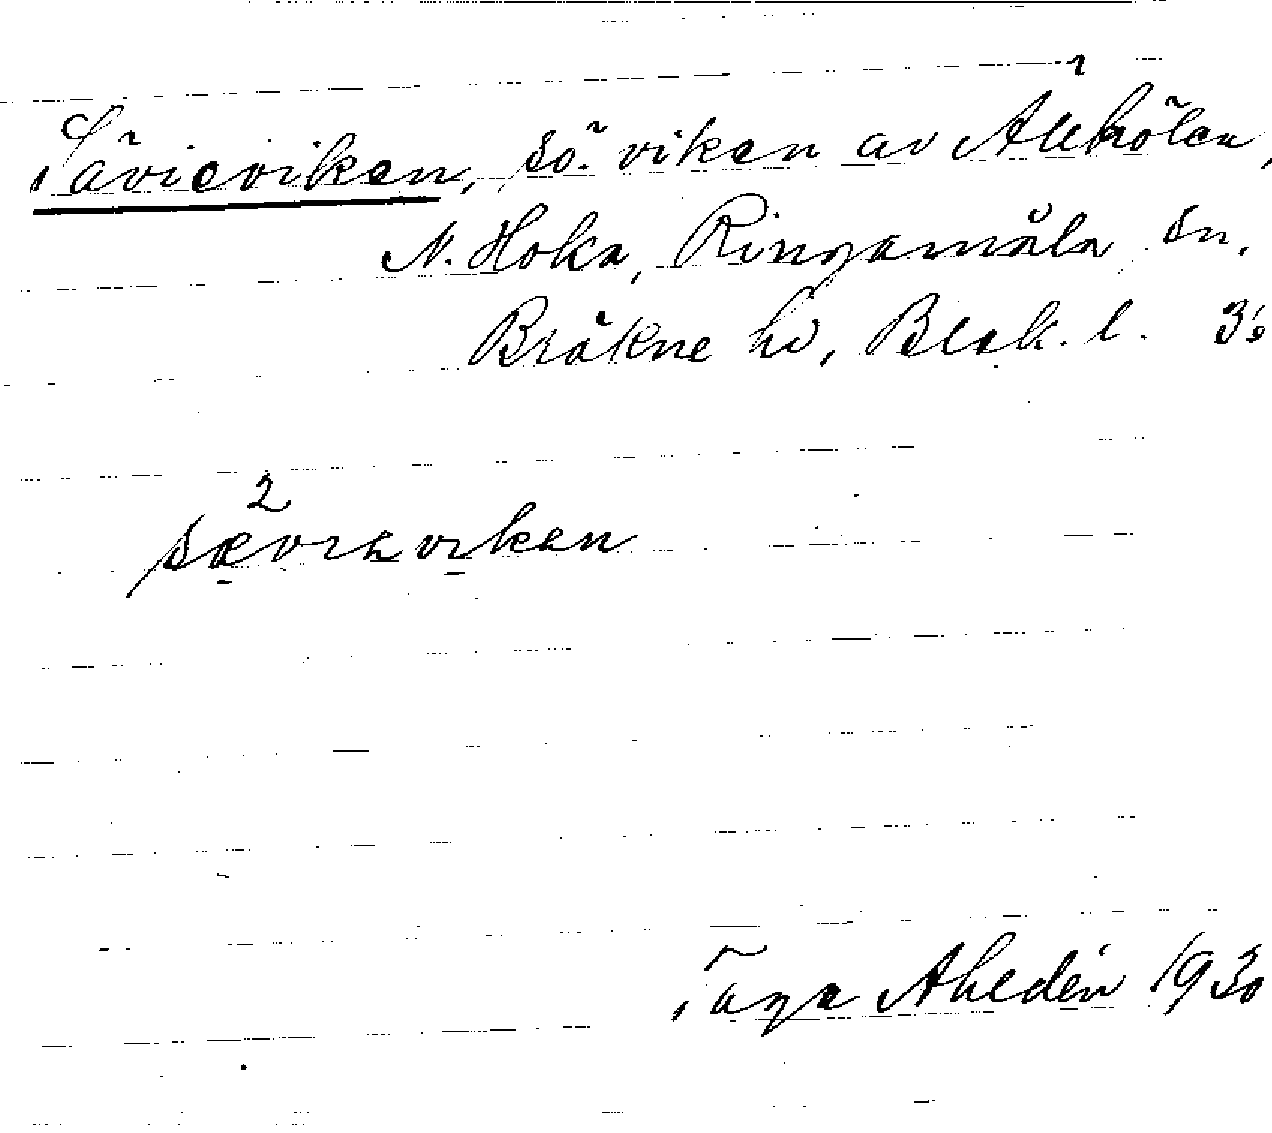 Säviesviken, sö. viken av Åkhölen,
N. Hoka, Ringamåla sn.
Bräkne hd, Blek. l. 30
2
sæviaviken
Tage Ahldén 1930